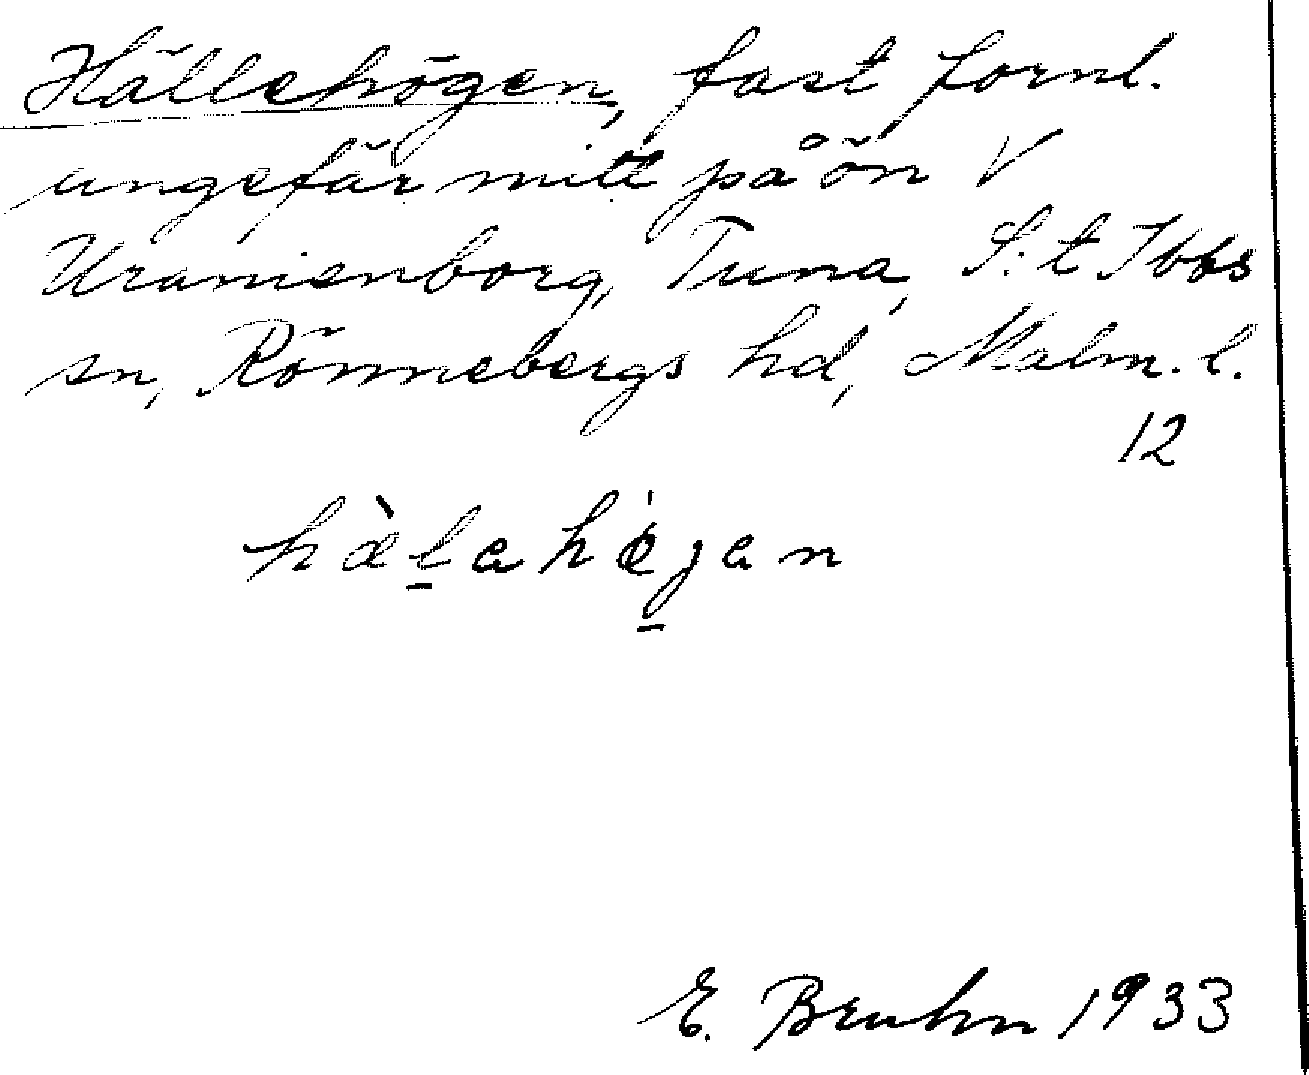 Hällehögen, fast fornl.
ungefär mitt på ön V
Uranienborg, Tuna, S:t Ibbs
sn, Rönnebergs hd, Malm. l.
12
E. Bruhn 1933